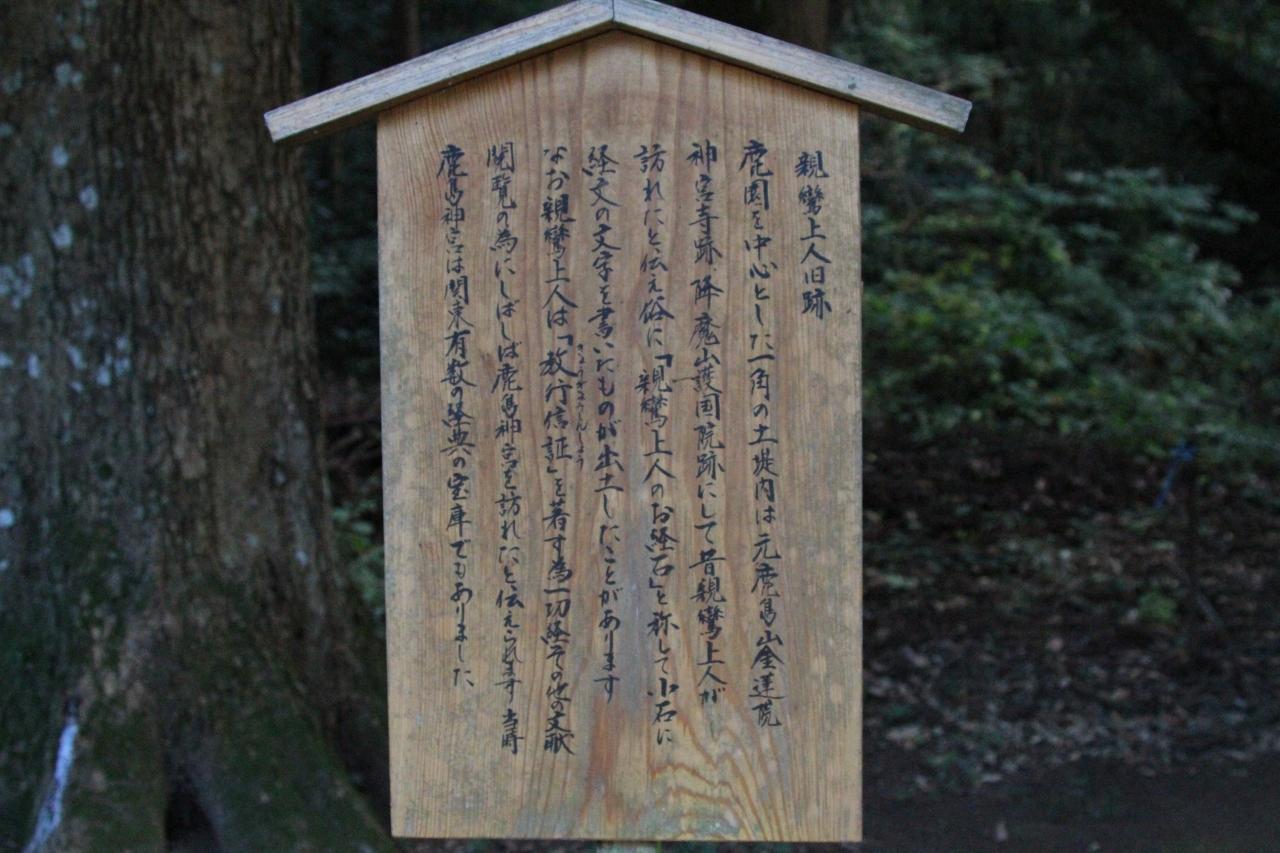 親鸞上人旧跡
鹿園を中心とした一角の土堤内は元鹿島山金蓮院
神宮寺跡、降魔山護国院跡にして昔親鸞上人が
訪れたと伝え俗に「親鸞上人のお経石」と称して小石に
経文の文字を書いたものが出土したことがあります
なお親鸞上人は「教行信証」を著す為一切経その他の文献
きょうぎょうしんしょう
閲覧の為にしばしば鹿島神宮を訪れたと伝えられます 当時
鹿島神宮は関東有数の経典の宝庫でもありました、